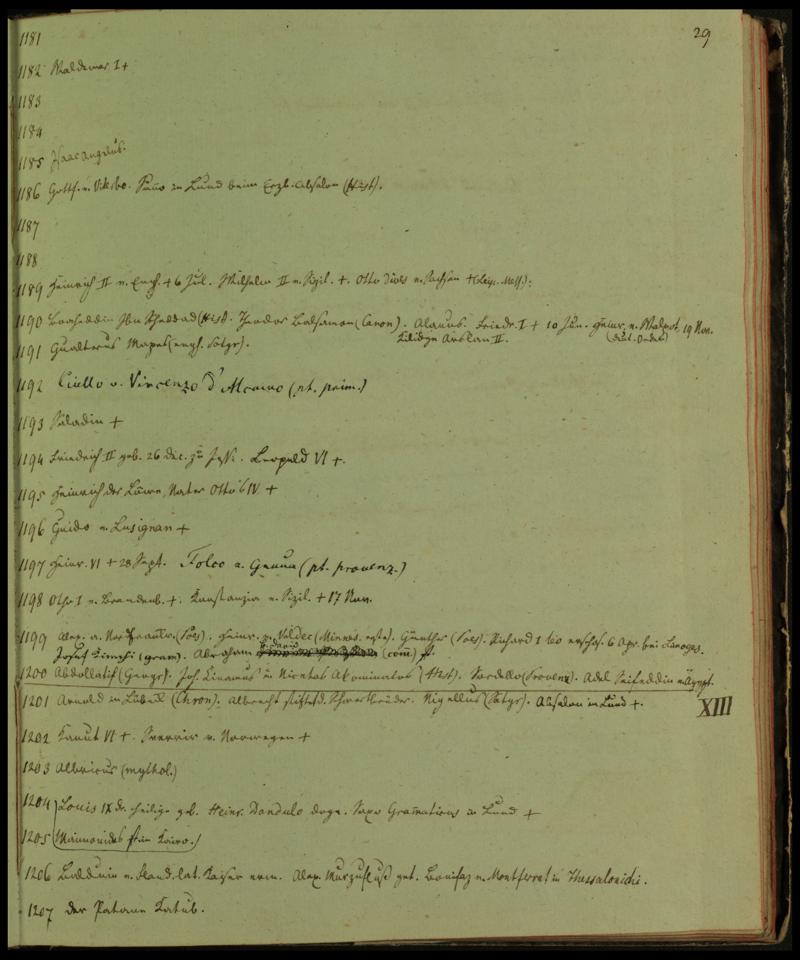 29
1181
1182 Waldemar I +
1183
1184
1185 Isaac Angelus.
1186 Gottfr. v. Viterbo. Saxo in Lund beim Erzb. Absalon (Hist).
1187
1188
1189 Heinrich II v. Engl. + 6 Jul. Wilhelm II v. Sizil. +. Otto v. +
1190 Bohaeddin Ibn Scheddad (Hist. Theodor Balsamon (Canon). Alanus. Friedr. I + 10 Jun. Heinr. v. Walpot 19 Nov.
(deut. Orden)
1191 Gualterus Mapes (engl. Satyr). Kilidge Arslan II.
1192 Ciullo v. Vincenzo d'Alcamo (pt. prim.)
1193 Saladin +
1194 Friedrich II geb. 26 Dec. zu Jesi. Leopold VI +.
1195 Heinrich der Löwe, Vater Otto's IV +
1196 Guido v. Lusignan +
1197 Heinr. VI + 28 Sept. Folco a. Genua (pt. provenz.)
1198 Otto I v. Brandenb. +. Konstanzia v. Sizil. + 17 Nov.
1199 Alex. (Poës). Heinr. v. Veldec (Minnes. erste). Günther (Poës). Richard I erschos. 6 Apr. bei Limoges.
Josef Kimchi (gram). Abraham (com)
1200 Abdollatif (Geogr). Joh Cinamus u Nicetas Akominatos (Hist). Sordello (Provenz). Adel Seifeddin v Ägypt.
XIII
1201 Arnold in Lübeck (Chron). Albrecht stiftet d. Schwertbrüder. Nigellus (Satyr). Absalon in Lund +.
1202 Kanut VI +. Sverrir v. Norwegen +
1203 Albricus (mythol.)
1204 Louis IX der heilige geb. Heinr. Dandulo doge. Saxo Gramaticus in Lund +
1205 Maimonides in Kairo.
1206 Balduin v. Fland. lat. Kaiser erm. Alex. Murzufluss get. Bonifaz v. Montferrat in Thessalonichi.
1207 der Patane Katub.